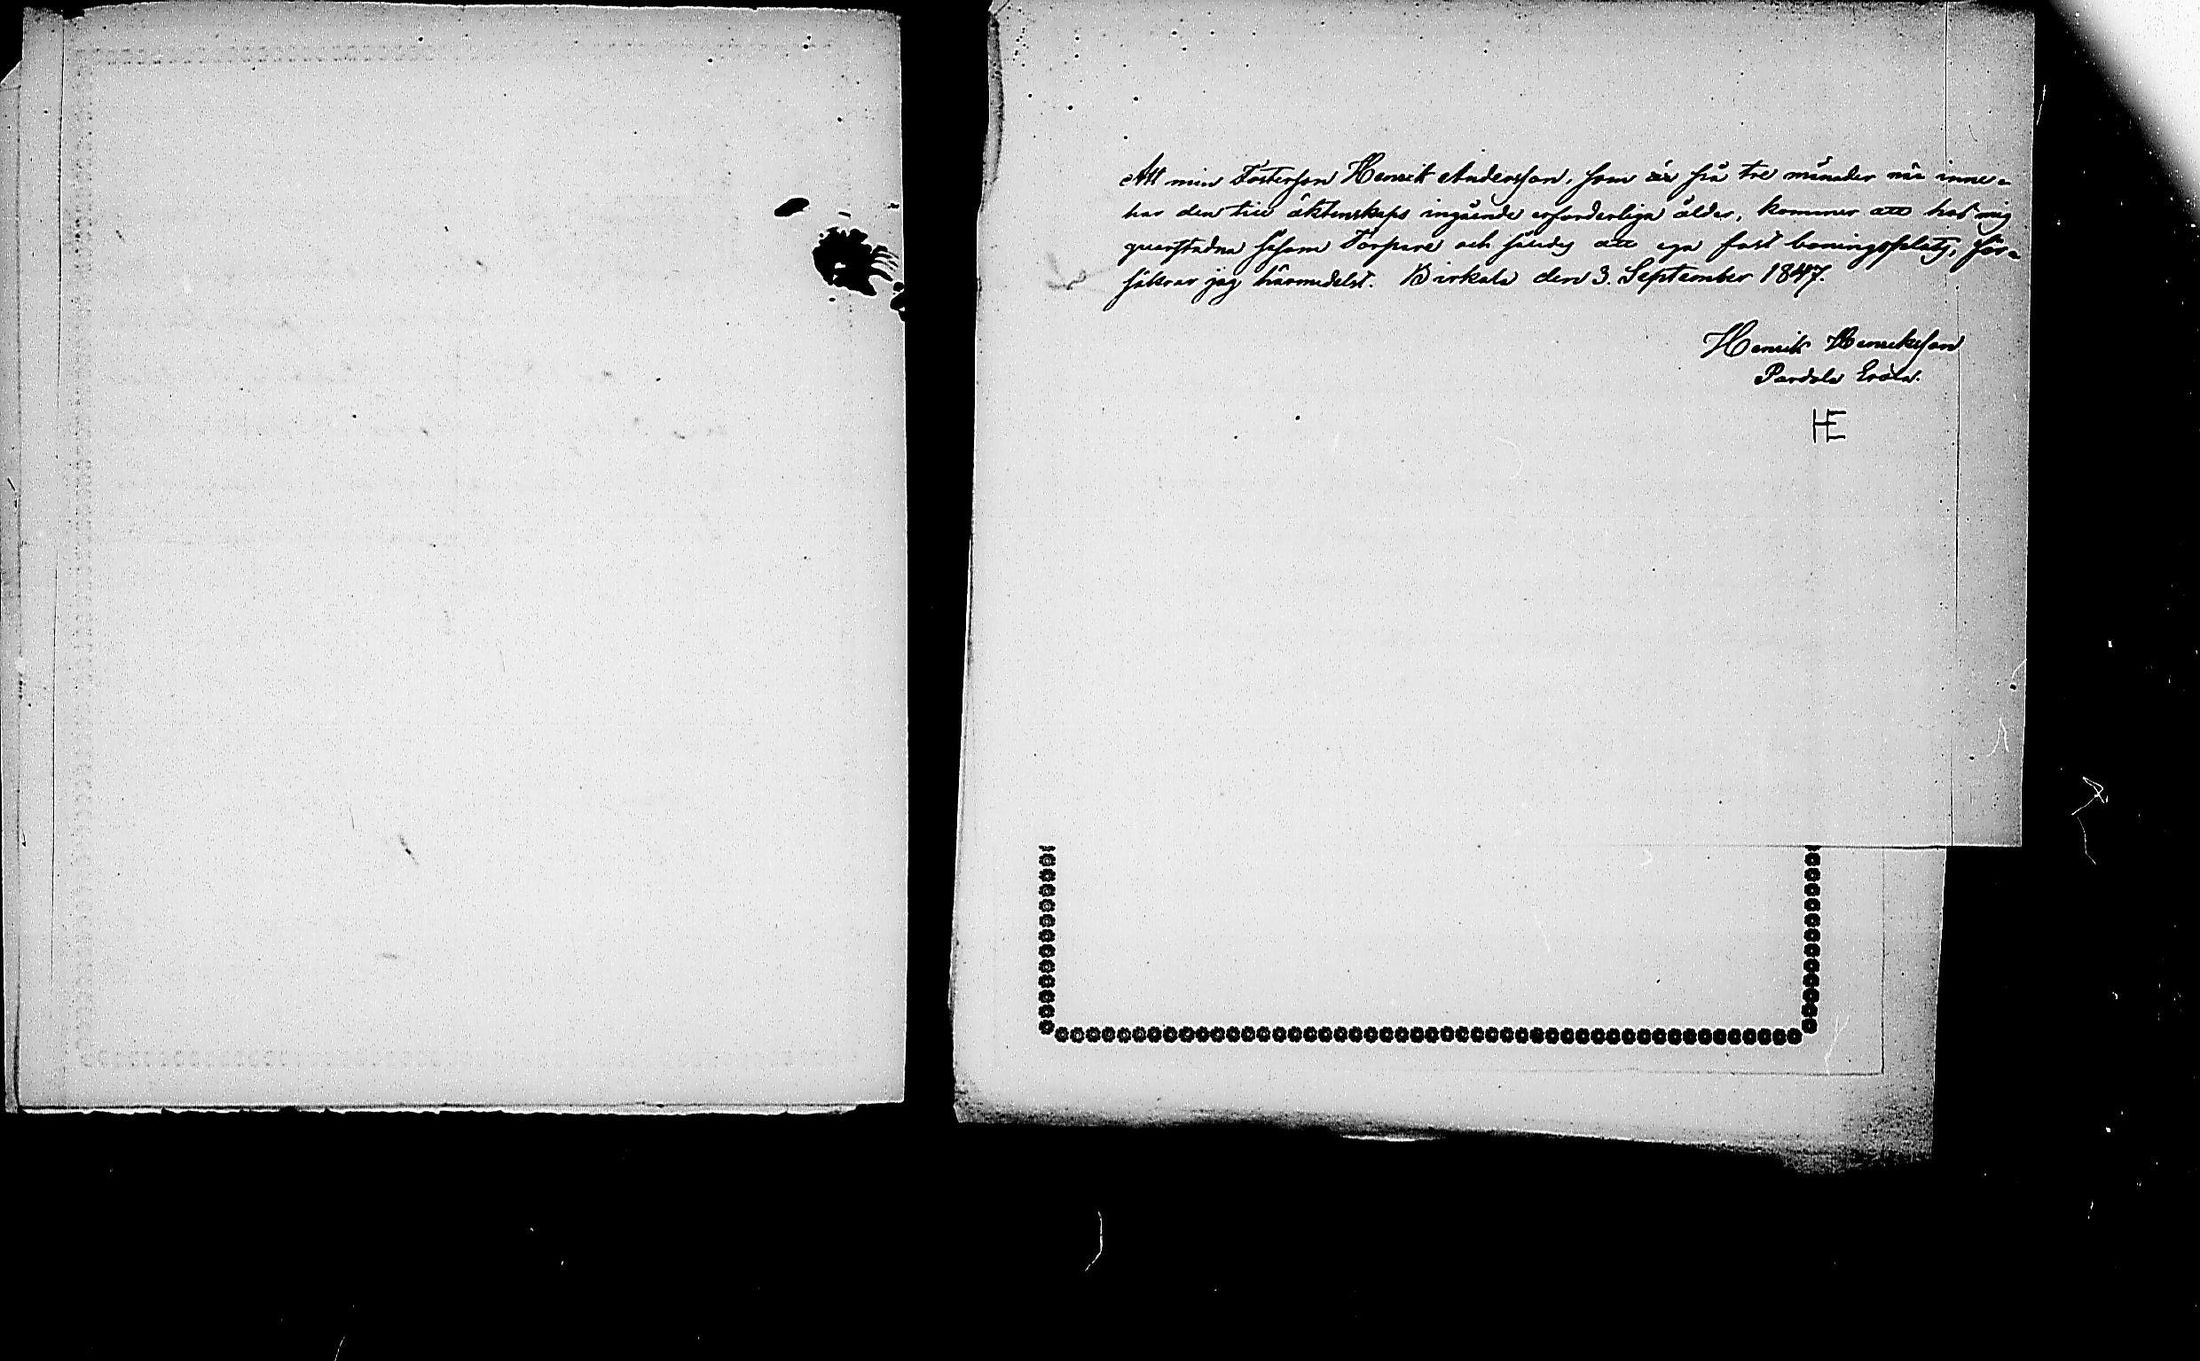 Att min Fosterson Henrik Andersson, som är på tre månader när inne-
har den till äktenskaps ingående erforderliga ålder, kommer att hos mig
quarstadna såsom Torpare och således att ega fast boningsplats, för-
säkrar jag härmedelst. Birkala den 3. September 1847.
Henrik Henriksson
Pardola Erola.
HE